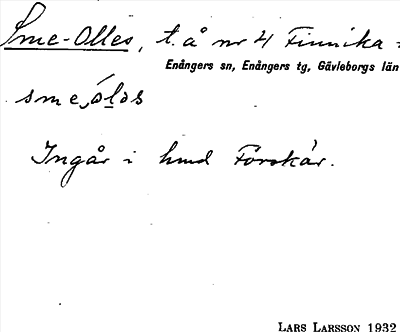 Sme-Olles, t. å nr 4 Finnika:
Enångers sn, Enångers tg, Gävleborgs län
smeólos
Ingår i hmd Förskär.
LARS LARSSON 1932